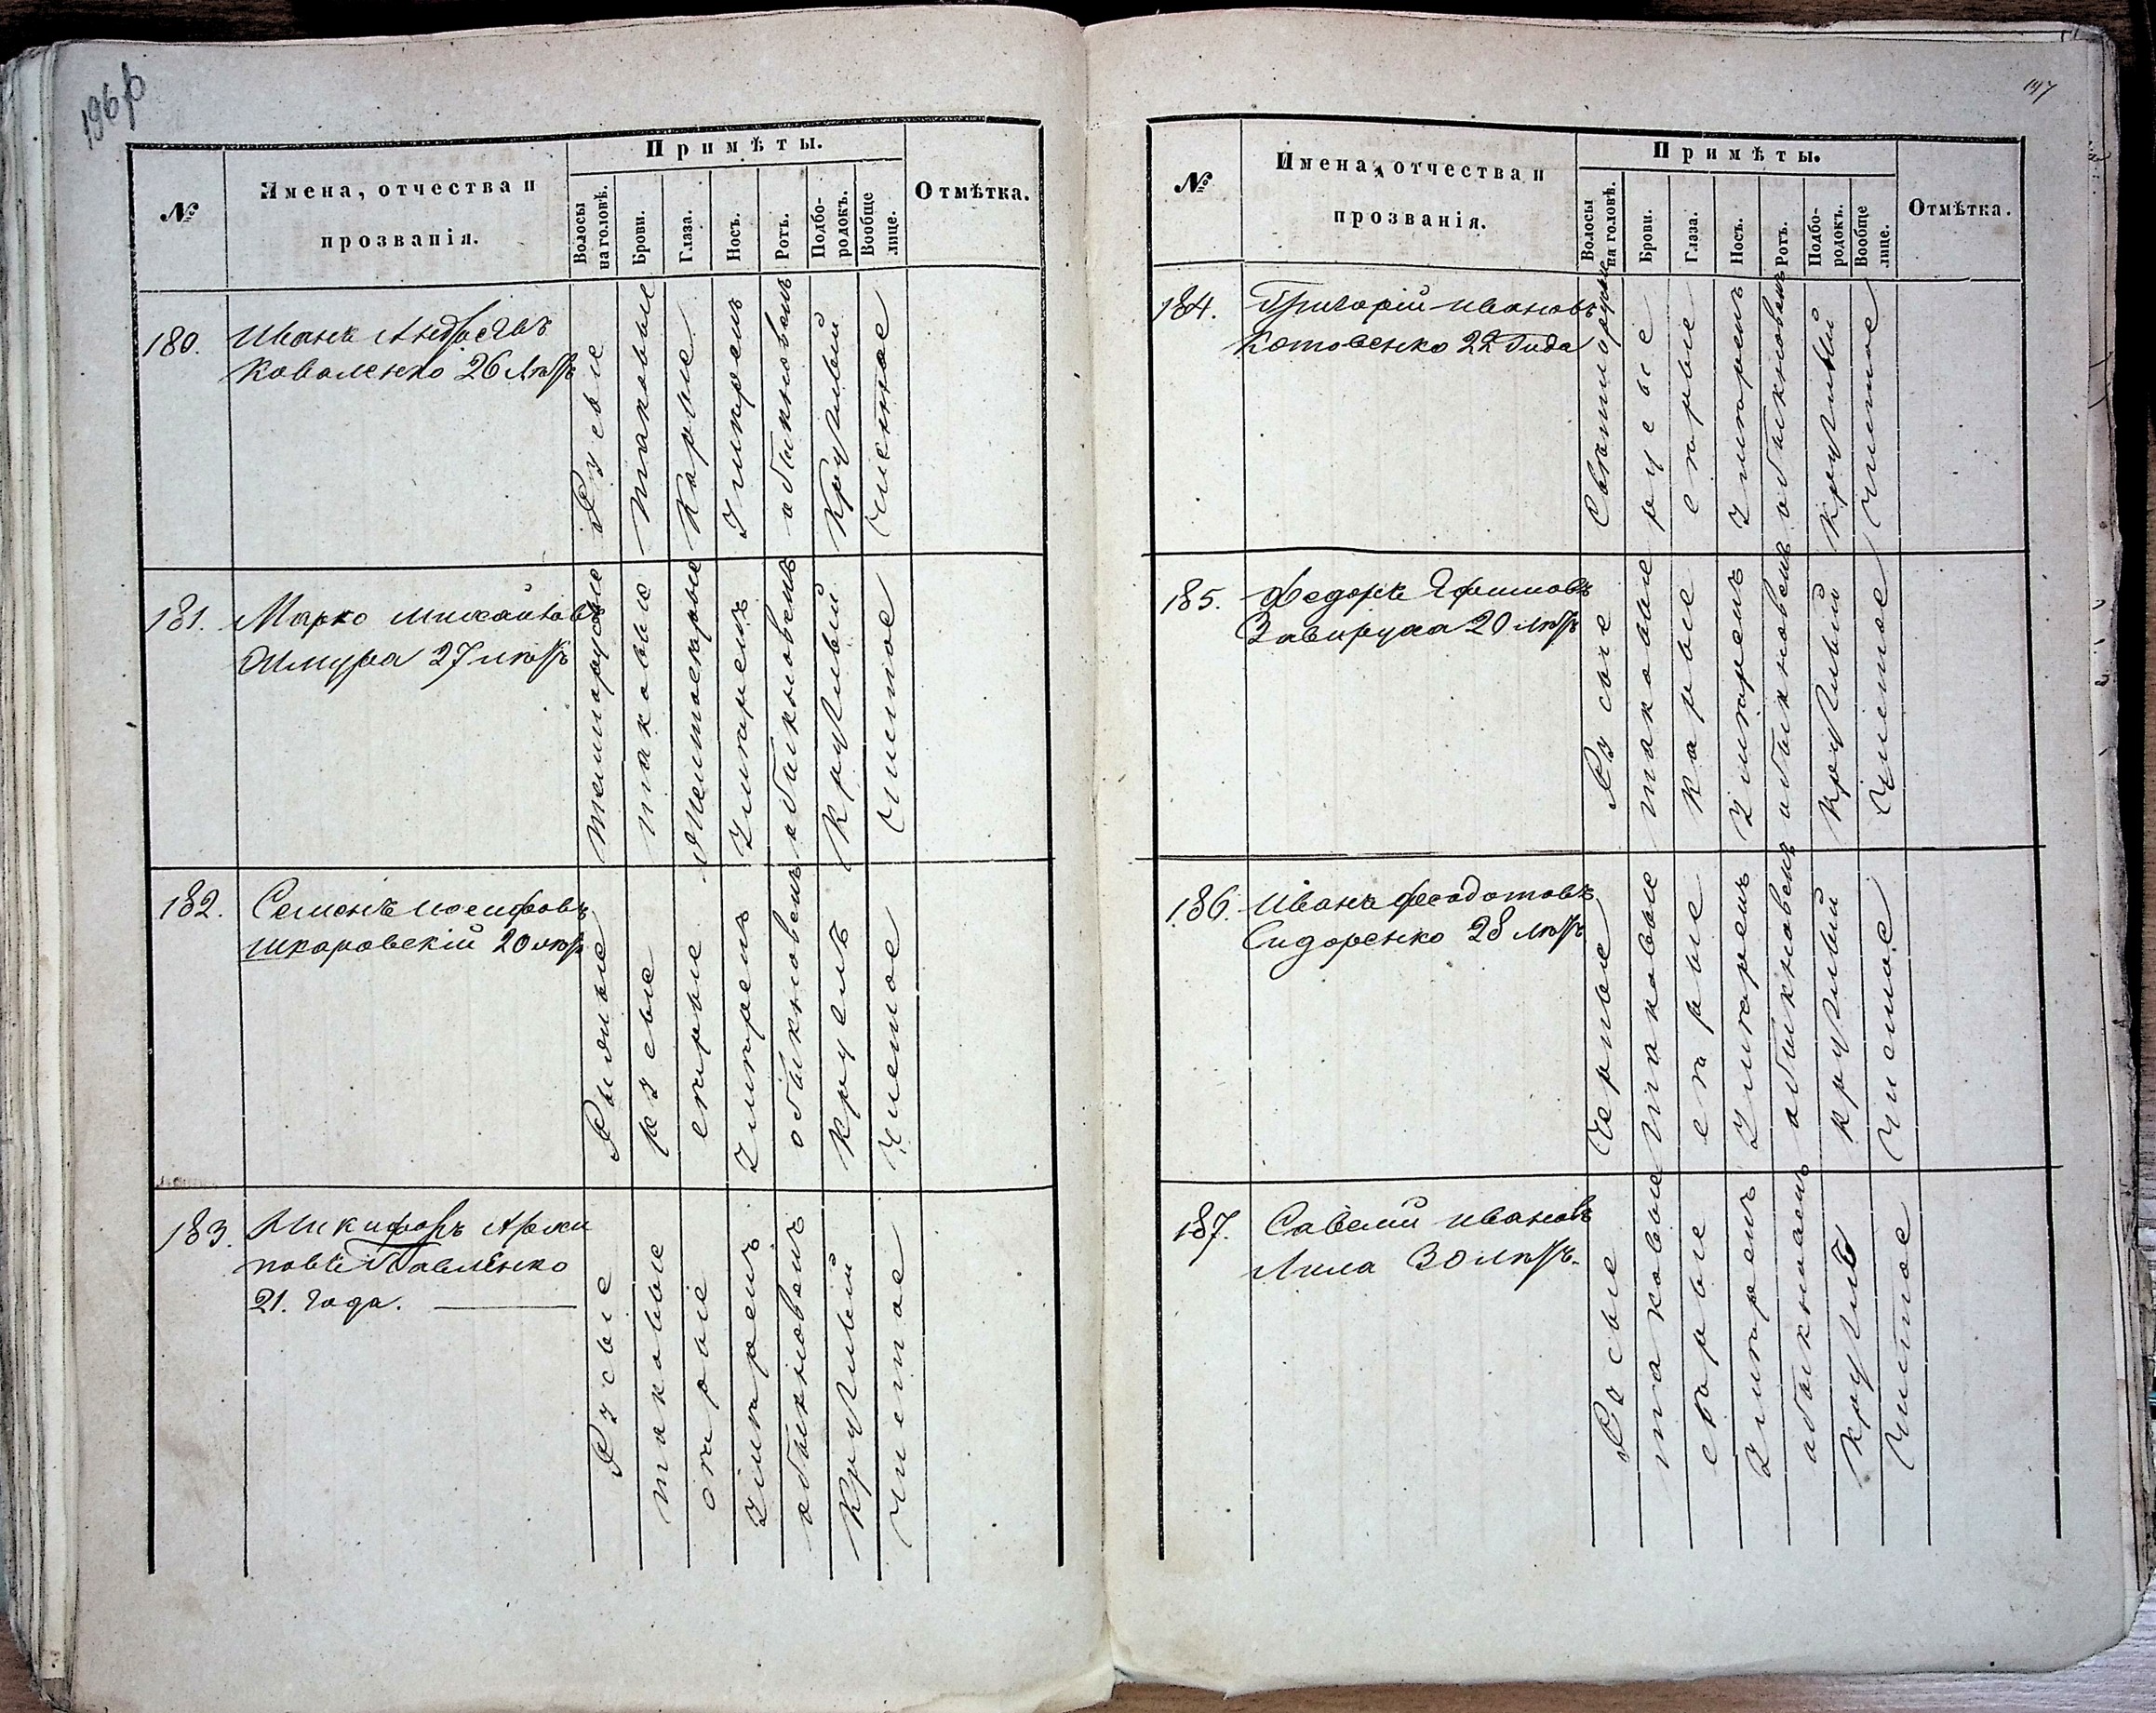 196 р
№
Имена, отчества и
прозванія.
Примѣты.
Волосы
на головѣ.
Брови.
Глаза.
Носъ.
Ротъ.
Подбо-
родокъ.
Вообще
лице.
Отмѣтка.
180.
Иванъ Андреевъ
Коваленко 26 лѣтъ
Русые
таковые
Карие
Умѣрен
обыкновен
Круглый
Чистое
181.
Марко Михайловъ
27 лѣтъ
Темнорусые
таковые
Умѣрен
обыкновен
Круглый
Чистое
182.
Семенъ Иосифовъ
Шкаровскій 20 лѣтъ
русые
серые
Умѣрен
обыкновен
Чистое
183.
Никифоръ Архи
повъ Павленко
21. года.
Русые
таковые
серые
Умѣрен
обыкновен
Круглый
Чистое
197
№
Имена, отчества и
прозванія.
Примѣты.
Волосы
на головѣ.
Брови.
Глаза.
Носъ.
Ротъ.
Подбо-
родокъ.
Вообще
лице.
Отмѣтка.
184.
Григорій Ивановъ
Котовенко 22 Года
Светлорусы
русые
серые
Умѣрен
обыкновен
круглый
Чистое
185.
Федоръ Ефимовъ
Завируха 20 лѣтъ
Русые
таковые
Карые
Умѣрен
обыкновен
круглый
Чистое
186.
Иванъ Феодотовъ
Сидоренко 28 лѣтъ
Черные
таковые
серые
Умѣрен
обыкновен
круглый
Чистое
187.
Савелий Ивановъ
30 лѣтъ.
Русые
таковые
серые
Умѣрен
Чистое